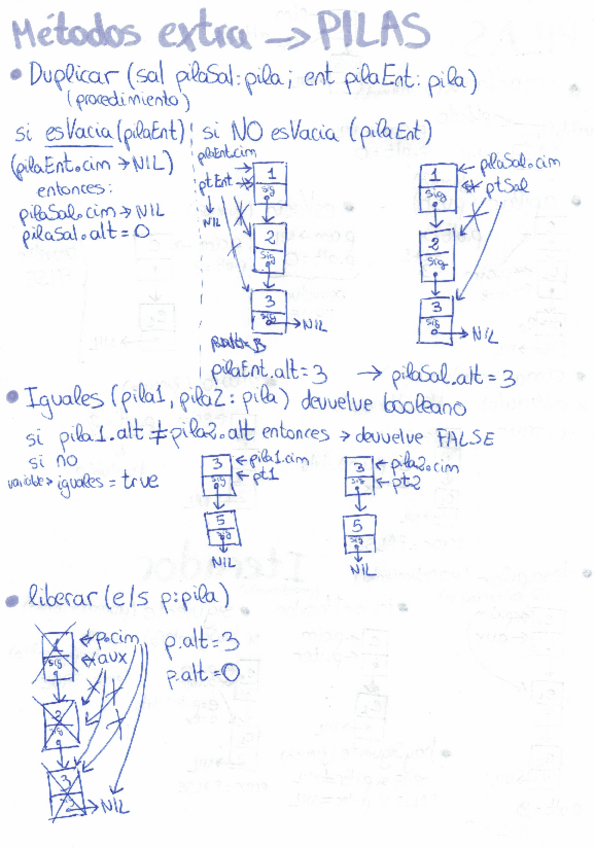 Métodos extra → PILAS
• Duplicar (sal pilaSal: pila; ent pilaEnt: pila)
(procedimiento)
si esVacia (pilaEnt)
(pilaEnt.cim → NIL)
entonces:
pilaSal.cim → NIL
pilaSal.alt = 0
si NO esVacia (pilaEnt)
pilaEnt.cim
ptEnt
NIL
1
sig
2
sig
3
sig
→ NIL
pilaEnt.alt = 3
1
sig
← pilaSal.cim
ptSal
2
sig
3
sig
→ NIL
→ pilaSal.alt = 3
• Iguales (pila1, pila2: pila) devuelve booleano
si pila1.alt ≠ pila2.alt entonces → devuelve FALSE
si no
variable → iguales = true
3 ← pila1.cim
sig ← pt1
5
sig
NIL
3 ← pila2.cim
sig ← pt2
5
sig
NIL
• liberar (e/s p: pila)
1 ← p.cim
sig ← aux
2
sig
3
→ NIL
p.alt = 3
p.alt = 0